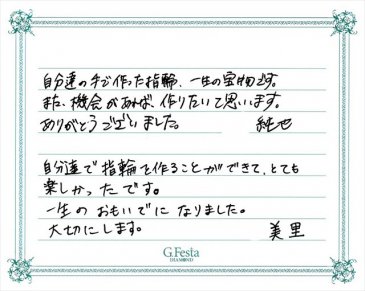 自分達の手で作った指輪、一生の宝物です。
また、機会があれば、作りたいて思います。
ありがとうございました。 純也
自分達で指輪を作ることができて、とても
楽しかったです。
一生のおもいでになりました。
大切にします。 美里
G.Festa
DIAMOND